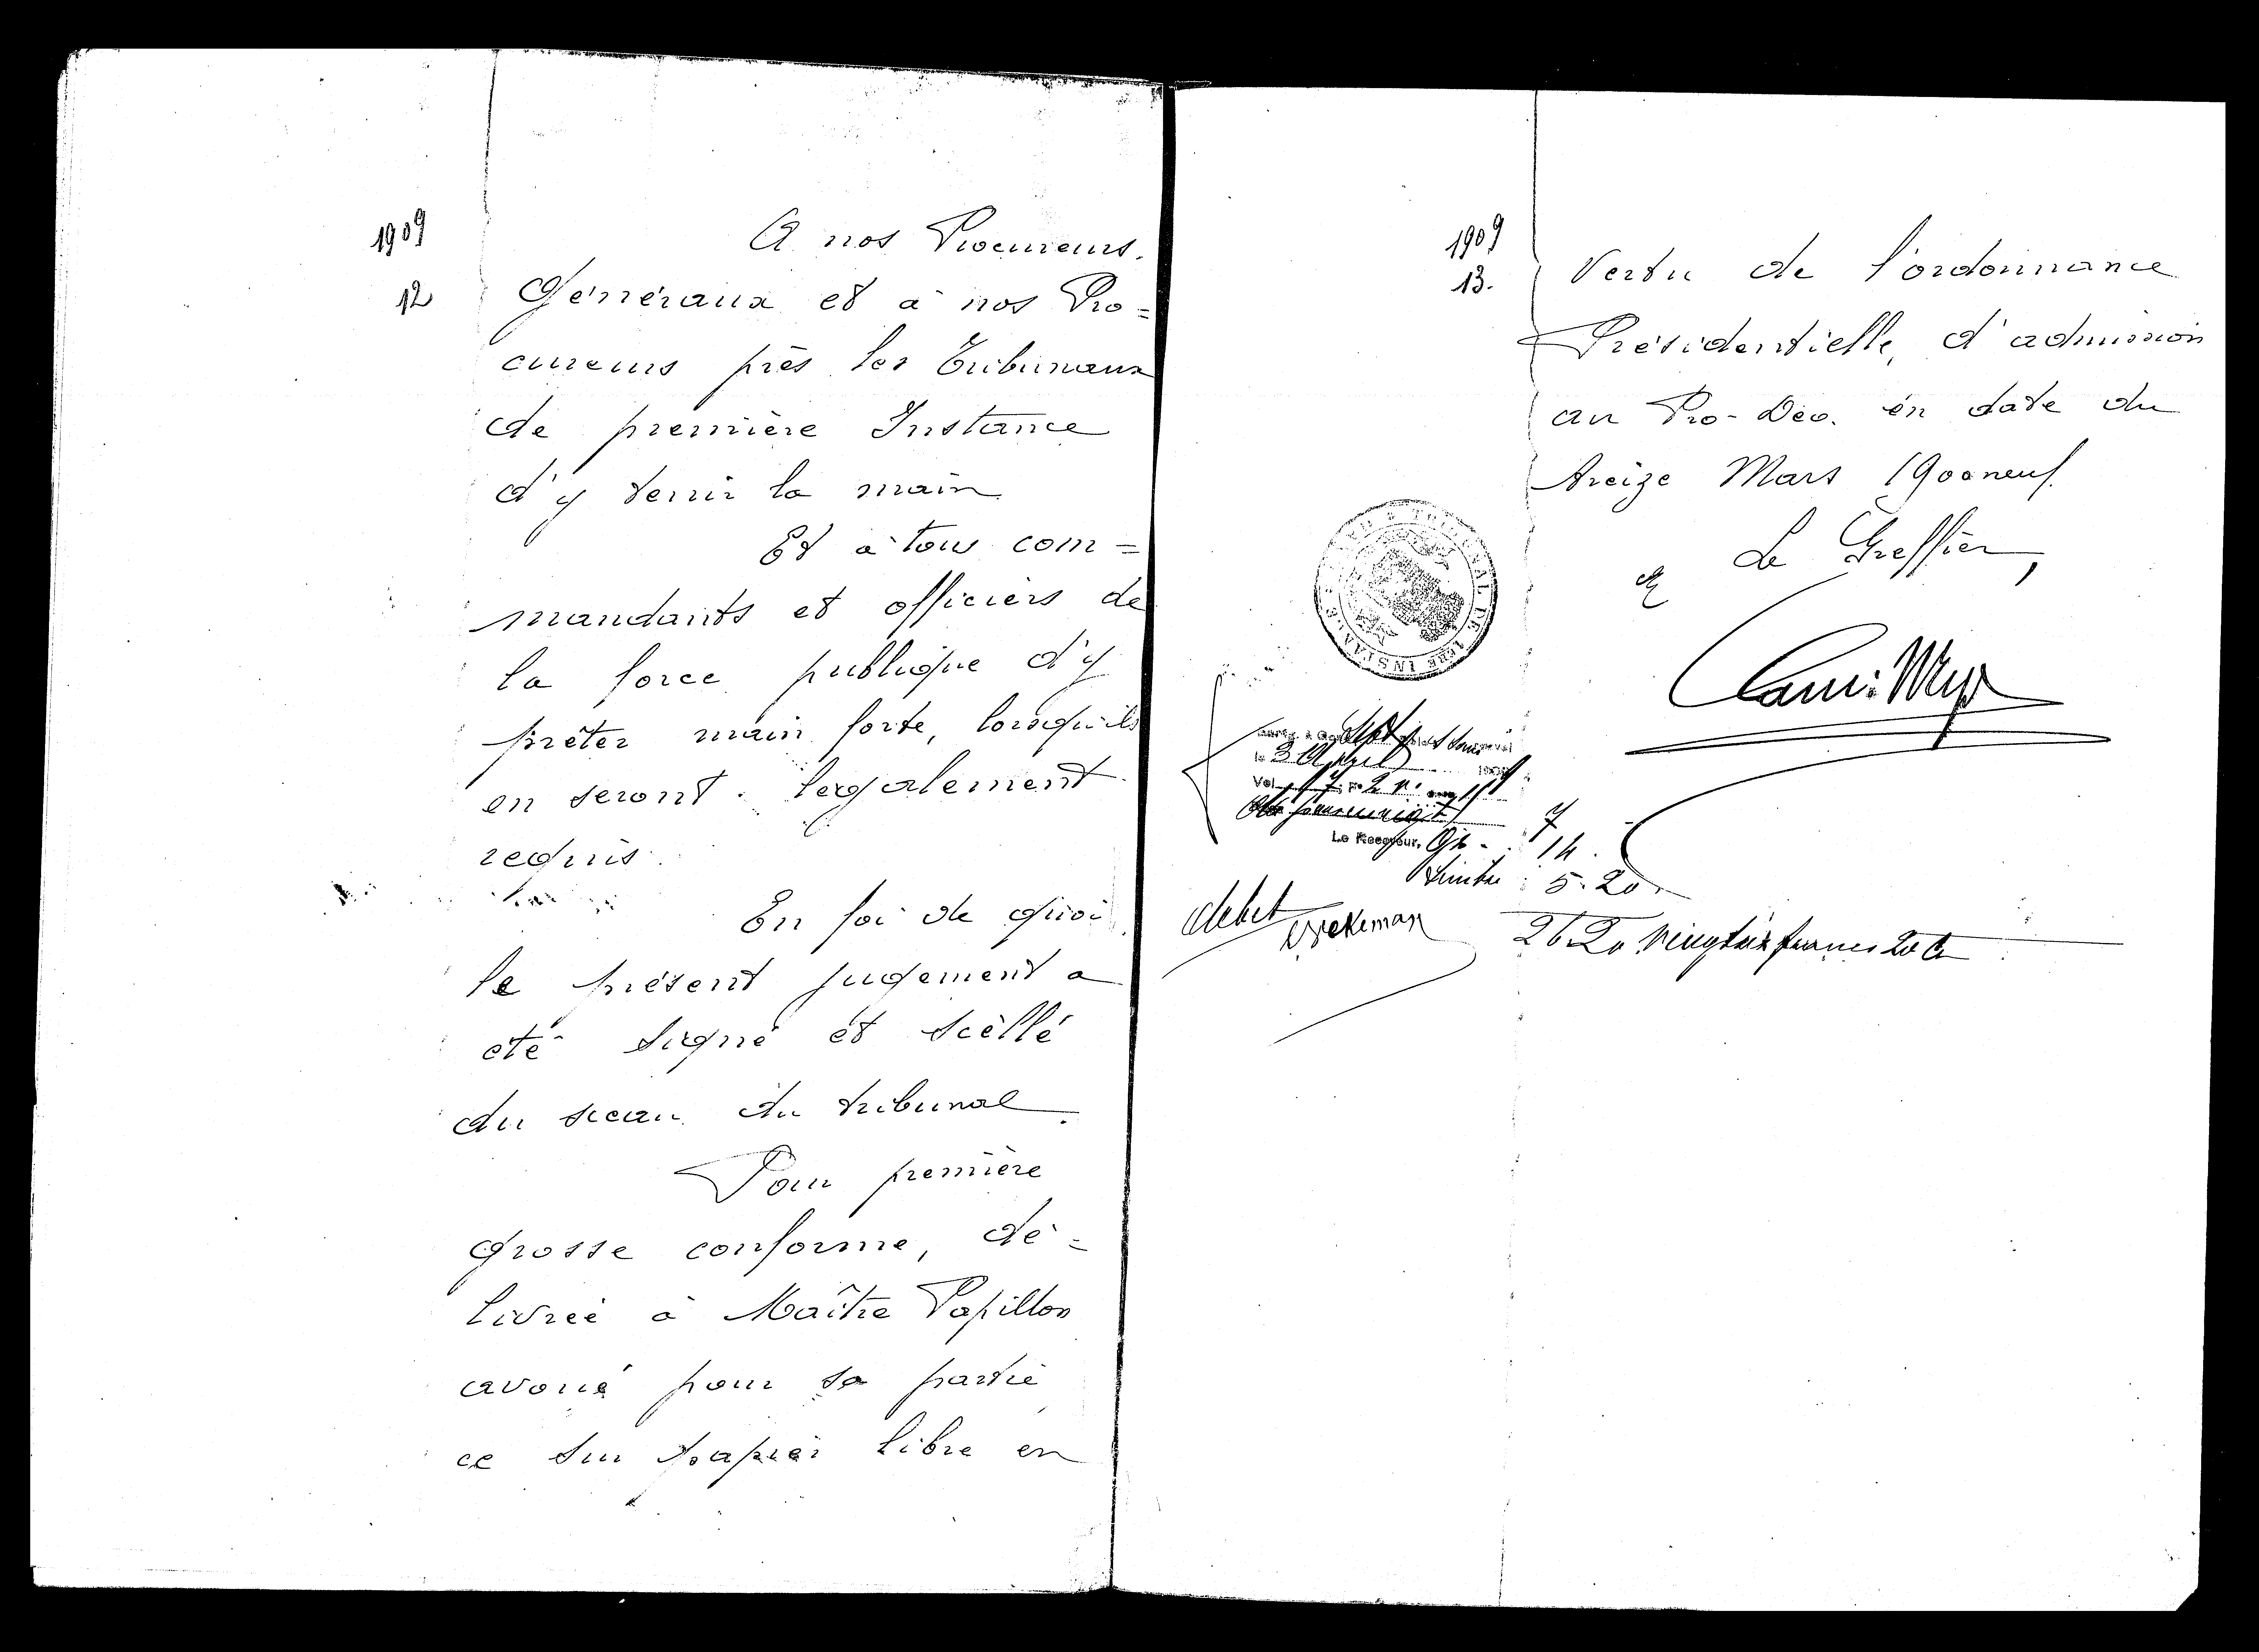 1909
12
A nos Procureurs.
Généraux et à nos Pro=
cureurs près les Tribunaux
de première Instance
d'y tenir la main
Et à tous com=
mandants et officiers de
la force publique d'y
prêter main forte, lorsqu'ils
en seront légalement
requis.
En foi de quoi
le présent jugement a
été signé et scèllé
du sceau du tribunal.
Pour première
grosse conforme, dé=
livrée à Maître Papillon
avoué pour sa partie
ce sur papier libre en
1909
13.
Vertu de l'ordonnance
Présidentielle, d'admission
au Pro-Deo. en date du
treize Mars 1900neuf.
Le Greffier,
TRIBUNAL DE 1ERE INSTANCE
le 3 avril
Vol. 17 2
Le Receveur,
7
14.
timbre 5.20
debet
26.20 vingtsix francs 20 c